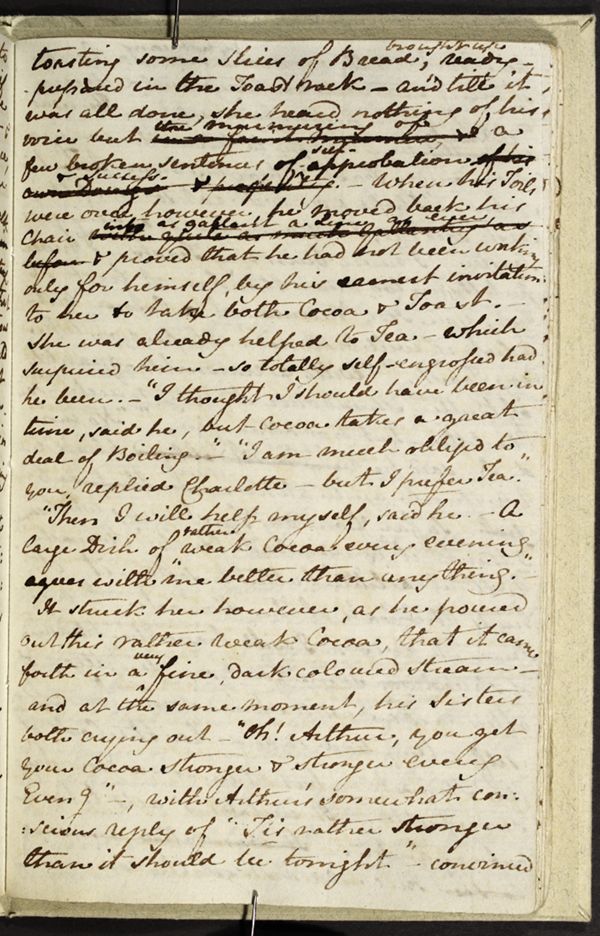 brought up
toasting some slices of Bread, ready-
-prepared in the Toast rack - and till it
was all done, she heard nothing of his
voice but the murmuring of a
few broken sentences of self-approbation
& success. - When his Toils
were over however, he moved back his
Chair into as gallant a Line as ever
& proved that he had not been working
only for himself, by his earnest invitation
to her to take both Cocoa & Toast. -
She was already helped to Tea - which
surprised him - so totally self-engrossed had
he been. - "I thought I should have been in
time, said he, but Cocoa takes a great
deal of Boiling." - "I am much obliged to
you, replied Charlotte - but I prefer Tea."
"Then I will help myself, said he. - A
large Dish of rather weak Cocoa every evening,
agrees with me better than anything." -
It struck her however, as he poured
out this rather weak Cocoa, that it came
forth in a very fine, dark coloured stream -
and at the same moment, his Sisters
both crying out - "Oh! Arthur, you get
your Cocoa stronger & stronger every
Eveng" -, with Arthur's somewhat con:
:scious reply of "Tis rather stronger
than it should be tonight" - convinced